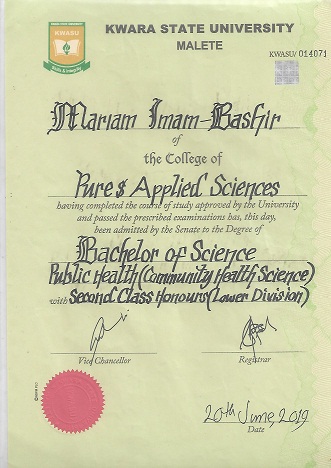 KWASU
KWARA STATE UNIVERSITY
MALETE
KWASU/ 014071
Mariam Imam-Bashir
of
the College of
Pure & Applied Sciences
having completed the course of study approved by the University
and passed the prescribed examinations has, this day,
been admitted by the Senate to the Degree of
Bachelor of Science
Public Health (Community Health Science)
with Second Class Honours (Lower Division)
Vice Chancellor
Registrar
20th June, 2019
Date